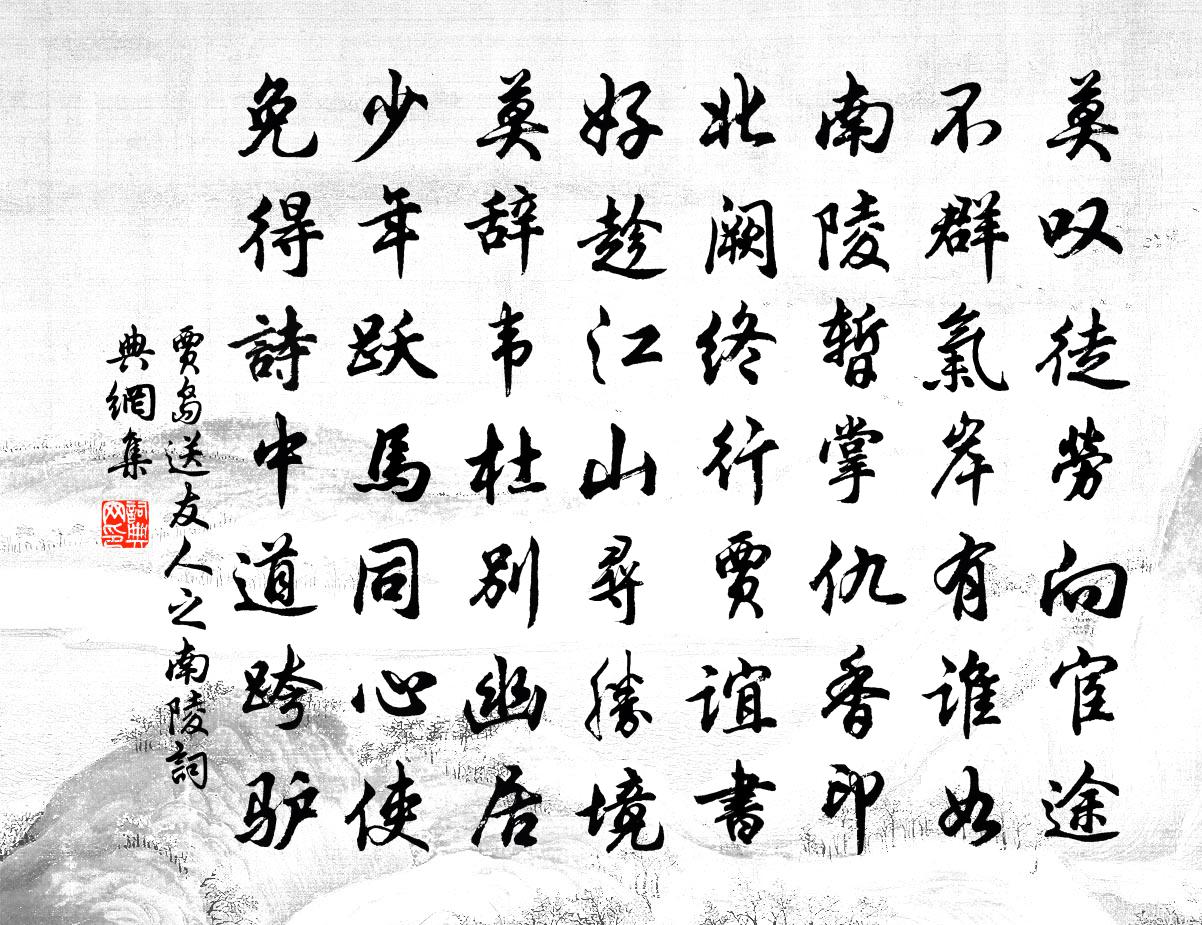 莫叹徒劳向宦途
不群氣岸有谁如
南陵暂掌仇香印
北阙终行贾谊書
好趁江山寻勝境
莫辞韦杜别幽居
少年跃馬同心使
免得詩中道跨驴
贾岛送友人之南陵詞
典網集
詞典
网印